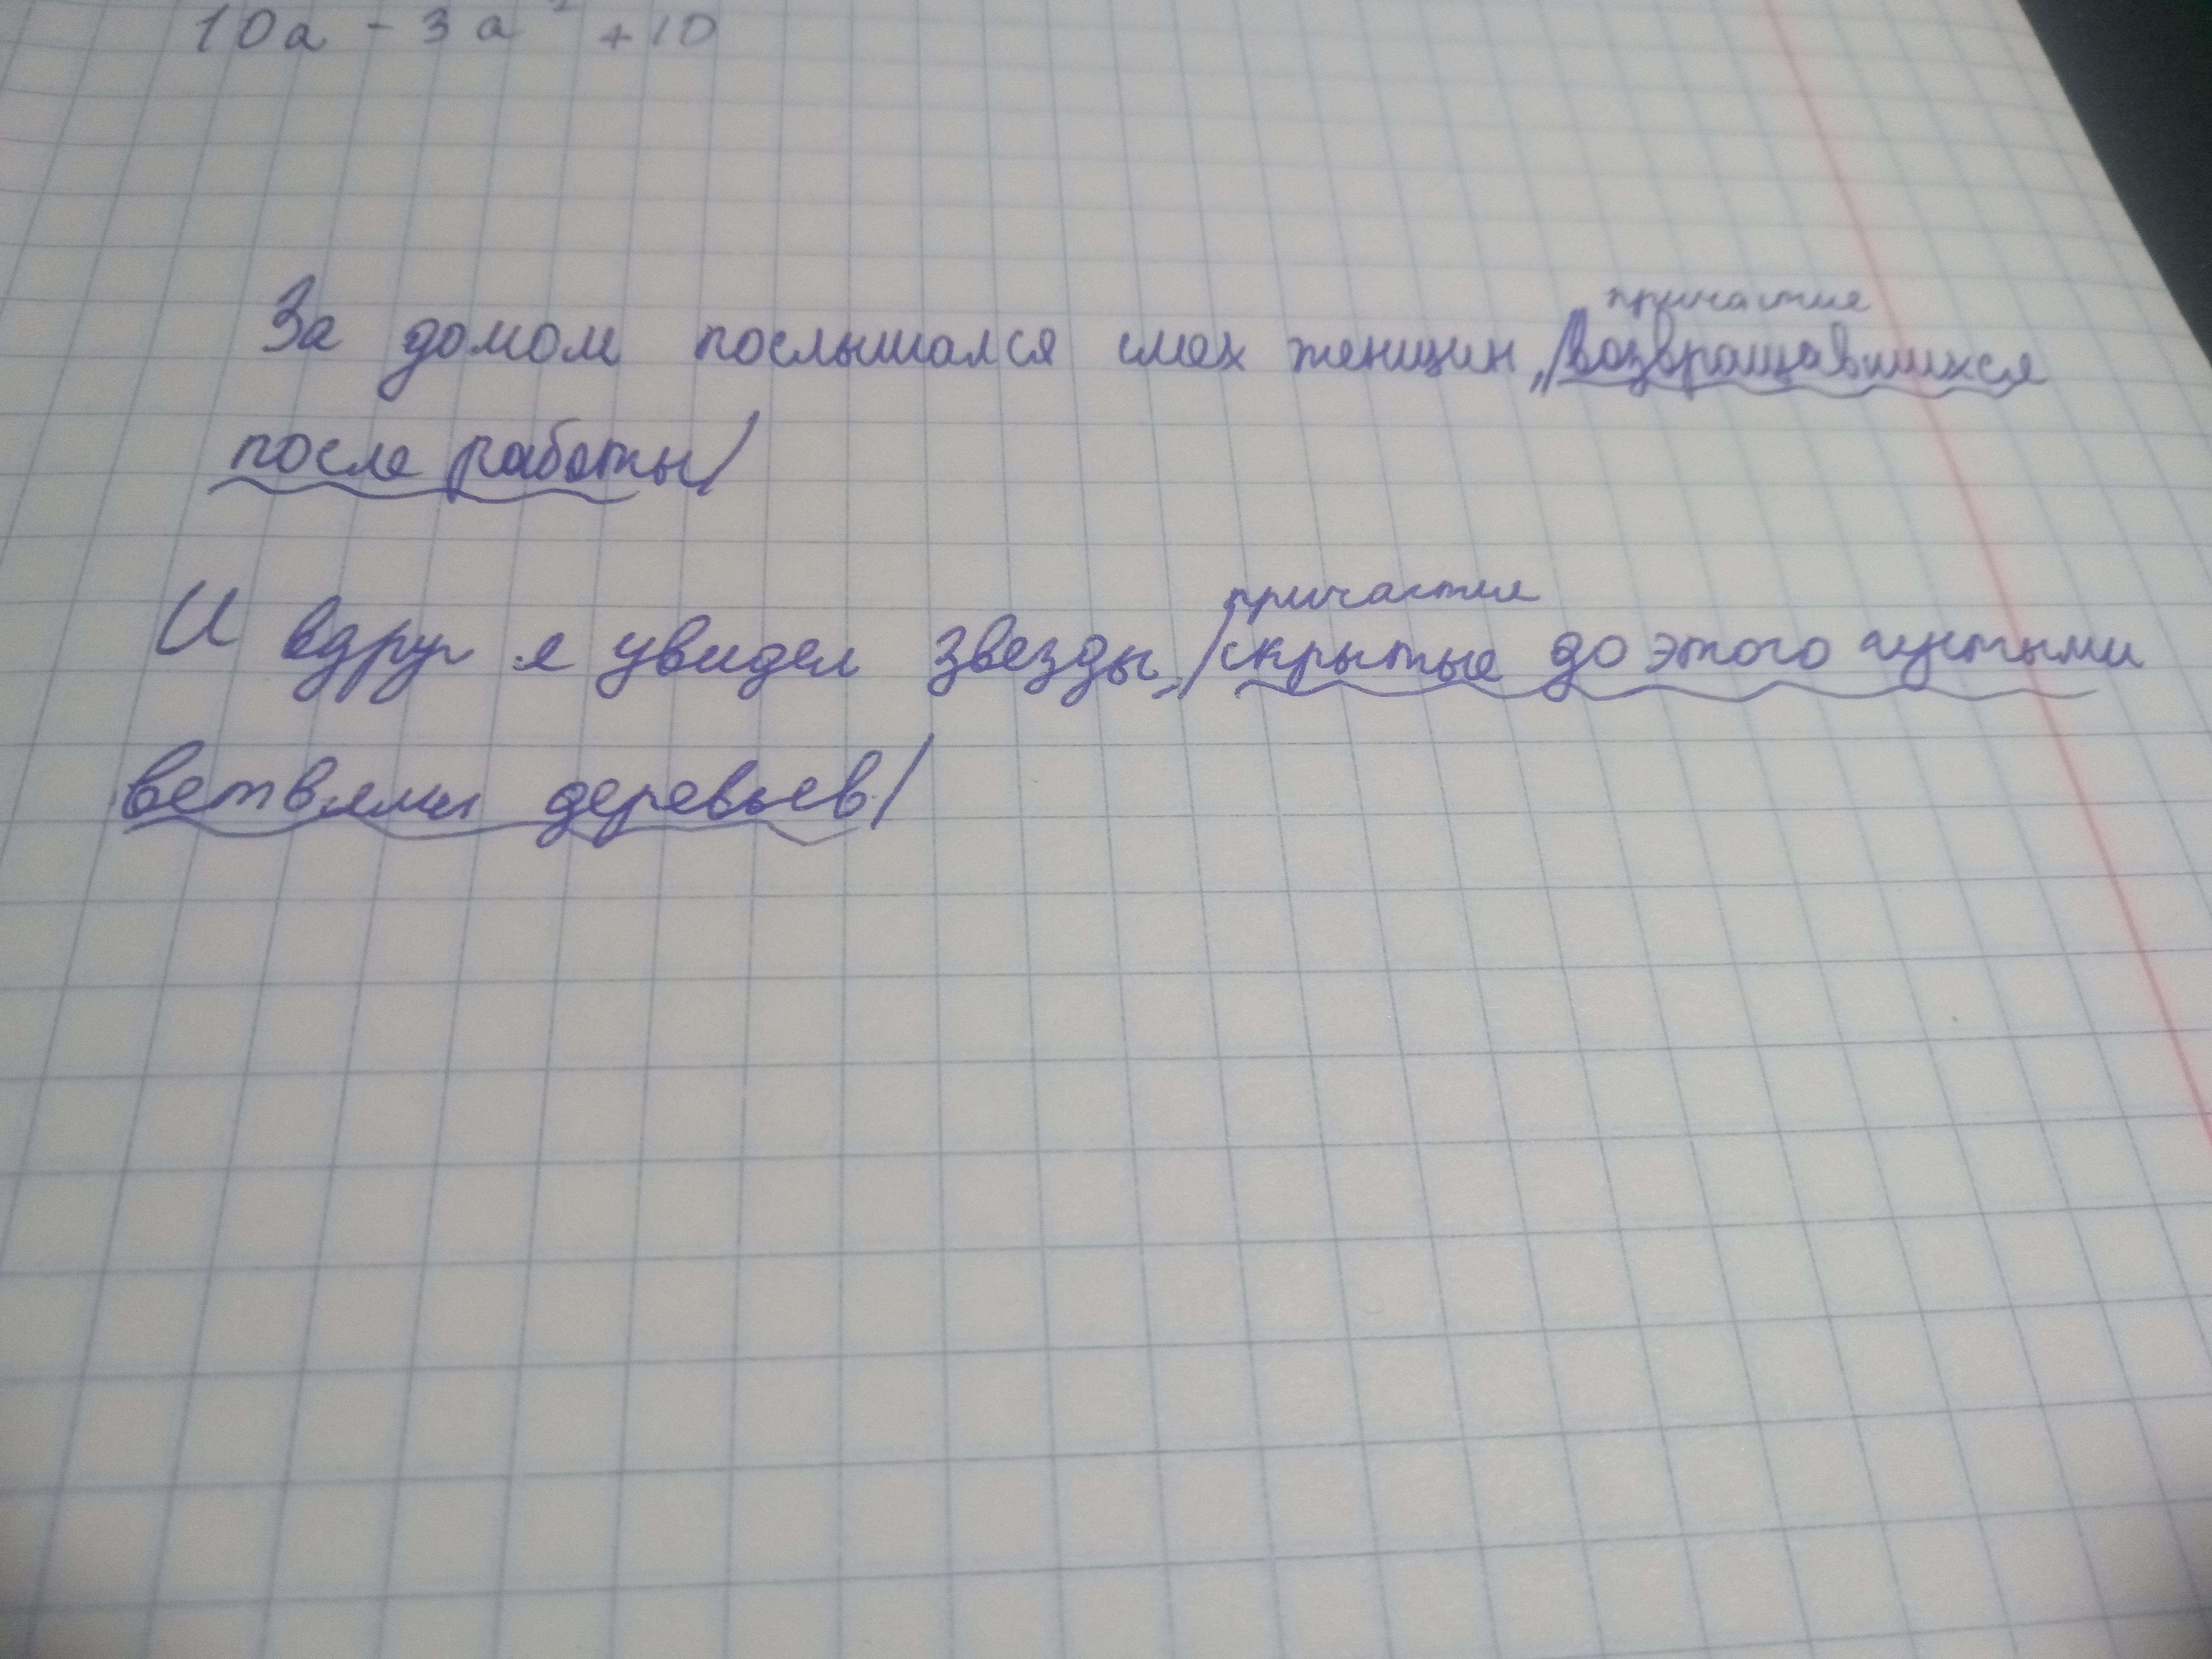 10а - 3а² + 10
причастие
За домом послышался смех женщин, /возвращавшихся
после работы/
причастие
И вдруг я увидел звезды, /скрытые до этого густыми
ветвями деревьев/